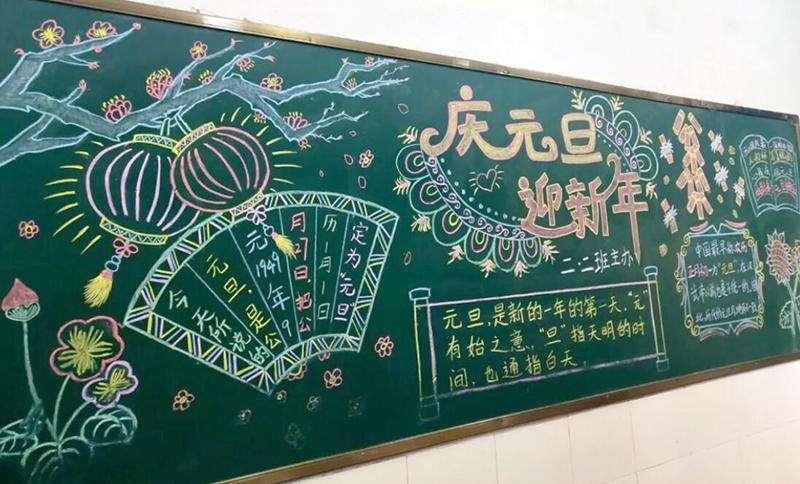 今天所说的
元旦,是公
元1949年9
月27日,把公
历一月一日
定为"元旦"
庆元旦
迎新年
二.二班主办
元旦,是新的一年的第一天,"元"
有始之意,"旦"指天明的时
间,也通指白天.
中国最早称农历
正月初一为"元旦",在汉